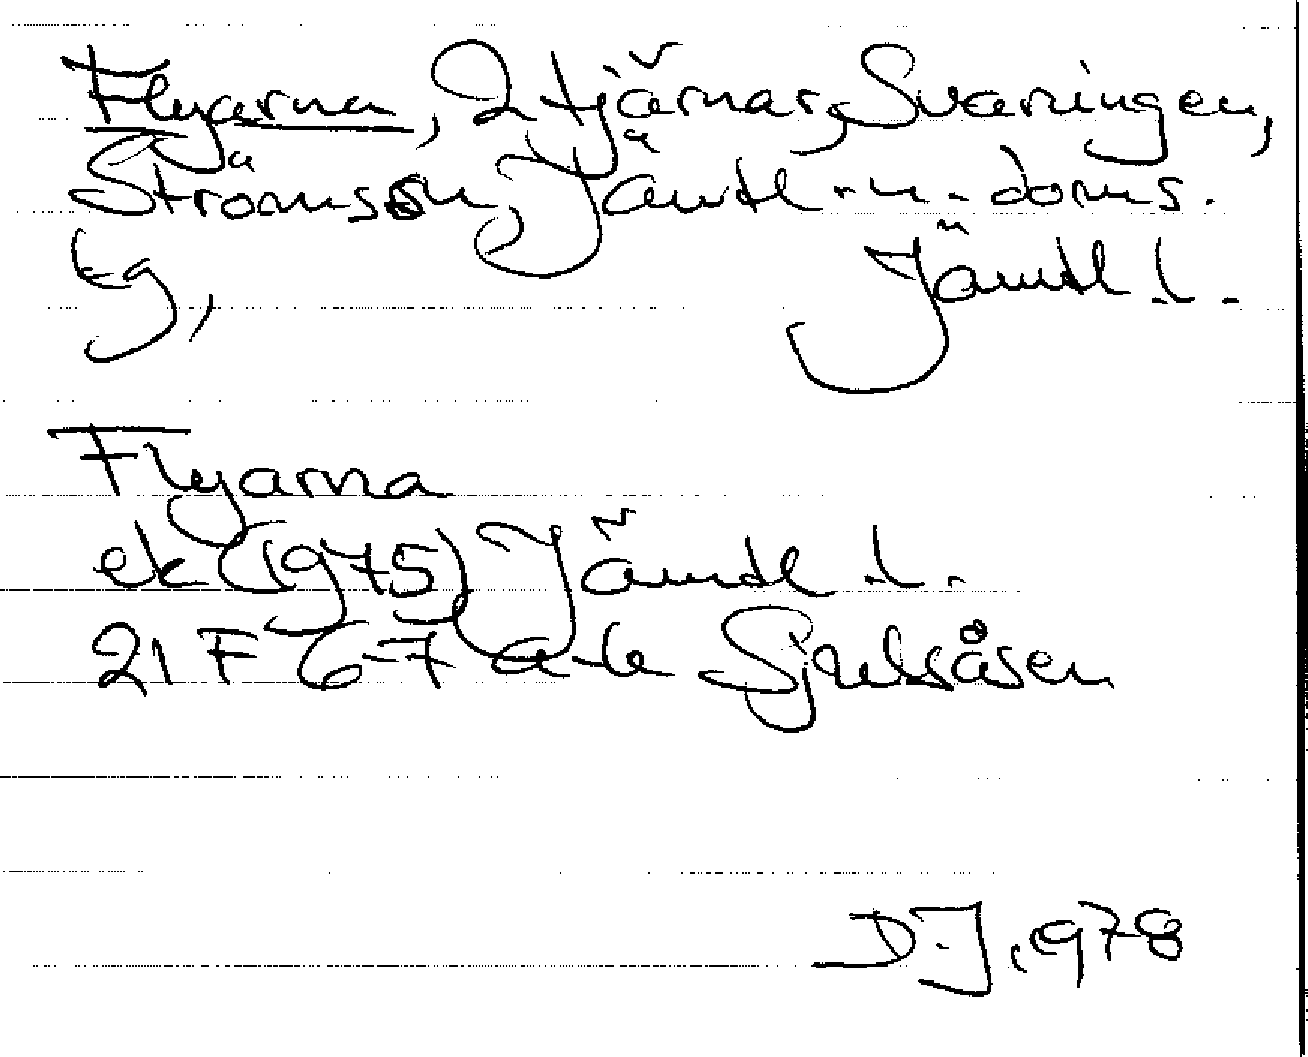 Flyarna, 2 tjärnar, Svaningen,
Strömsson, Jämtl. n. doms.
tg, Jämtl. l.
Flyarna
ek (1975) Jämtl. l.
21 F 6-7 a-b Sjulsåsen
D.J. 1978